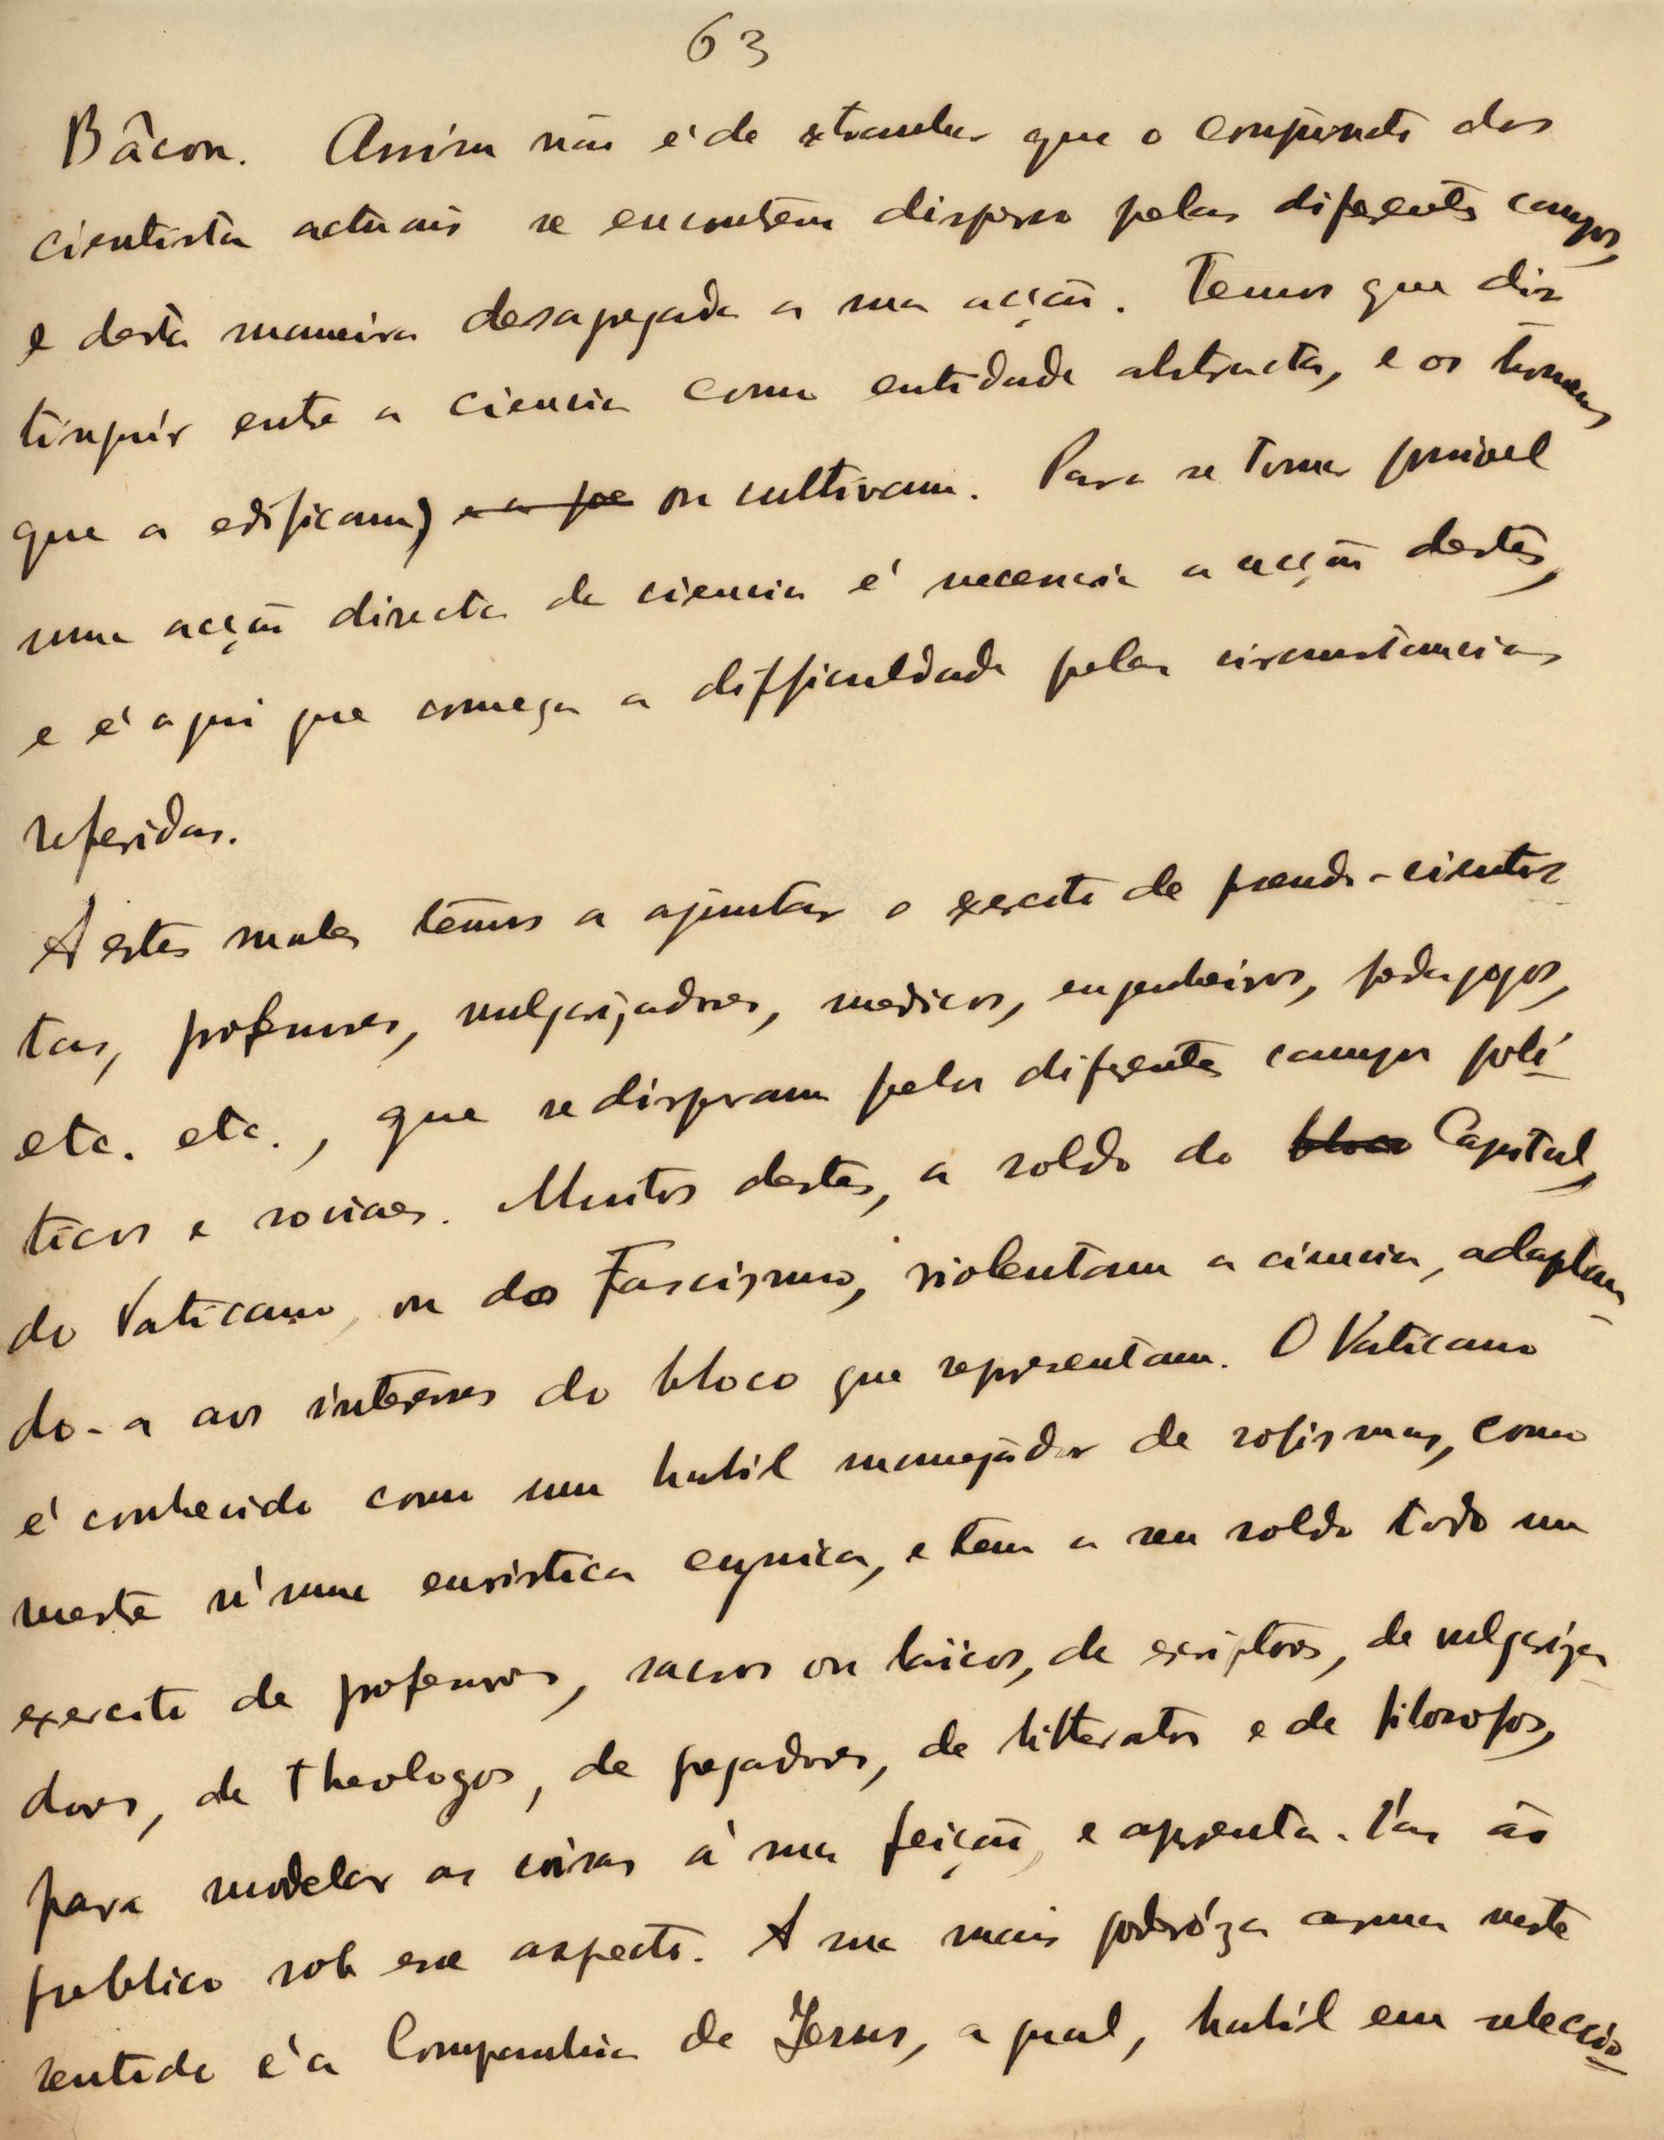 63
Bâcon. Assim não é de extranhar que o conjuncto dos
cientistas actuais se encontrem disperso pelas diferentes campos,
e desta maneira desagregada a sua acção. Temos que dis
tinguir entre a ciencia como entidade abstracta, e os homens
que a edificam) e a pe ou cultivam. Para se tornar possivel
uma acção directa da ciencia é necessaria a acção destes,
e é aqui que começa a difficuldade pelas circumstancias
referidas.
A estes males têmos a ajuntar o exercito de pseudo-cientis
tas, professores, vulgarizadores, medicos, engenheiros, pedagogos,
etc. etc., que se dispersam pelos diferentes campos polí-
ticos e sociaes. Muitos destes, a soldo do bloco Capital,
do Vaticano, ou do Fascismo, violentam a ciencia, adaptan-
do-a aos interesses do bloco que representam. O Vaticano
é conhecido como um habil manejador de sofismas, como
mestre n'uma euristica cynica, e tem a seu soldo todo um
exercito de professores, sacros ou laicos, de escriptores, de vulgariza-
dores, de theologos, de pregadores, de litteratos e de filosofos,
para modelar as coisas á sua feição, e apresenta-las ao
publico sob esse aspecto. A sua mais poderóza arma neste
sentido é a Companhia de Jesus, a qual, habil em seleccio-